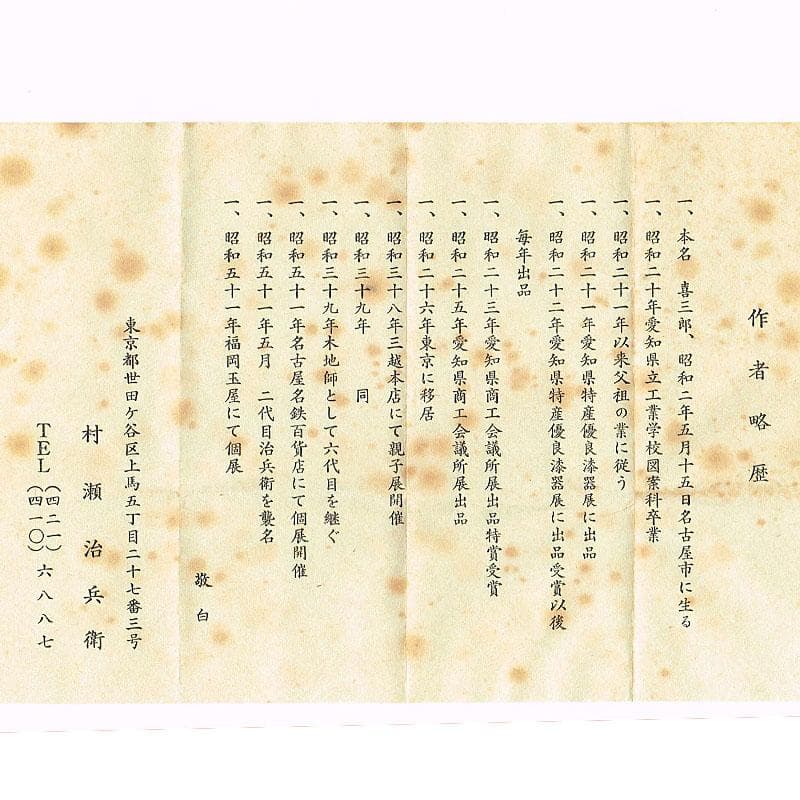 作者略歴
一、本名　喜三郎、昭和二年五月十五日名古屋市に生る
一、昭和二十年愛知県立工業学校図案科卒業
一、昭和二十一年以来父祖の業に従う
一、昭和二十一年愛知県特産優良漆器展に出品
一、昭和二十二年愛知県特産優良漆器展に出品受賞以後
毎年出品
一、昭和二十三年愛知県商工会議所展出品特賞受賞
一、昭和二十五年愛知県商工会議所展出品
一、昭和二十六年東京に移居
一、昭和三十八年三越本店にて親子展開催
一、昭和三十九年　同
一、昭和三十九年木地師として六代目を継ぐ
一、昭和五十一年名古屋名鉄百貨店にて個展開催
一、昭和五十一年五月　二代目治兵衛を襲名
一、昭和五十一年福岡玉屋にて個展
敬白
東京都世田ケ谷区上馬五丁目二十七番三号
村瀬治兵衛
TEL（四二一）（四一〇）六八八七